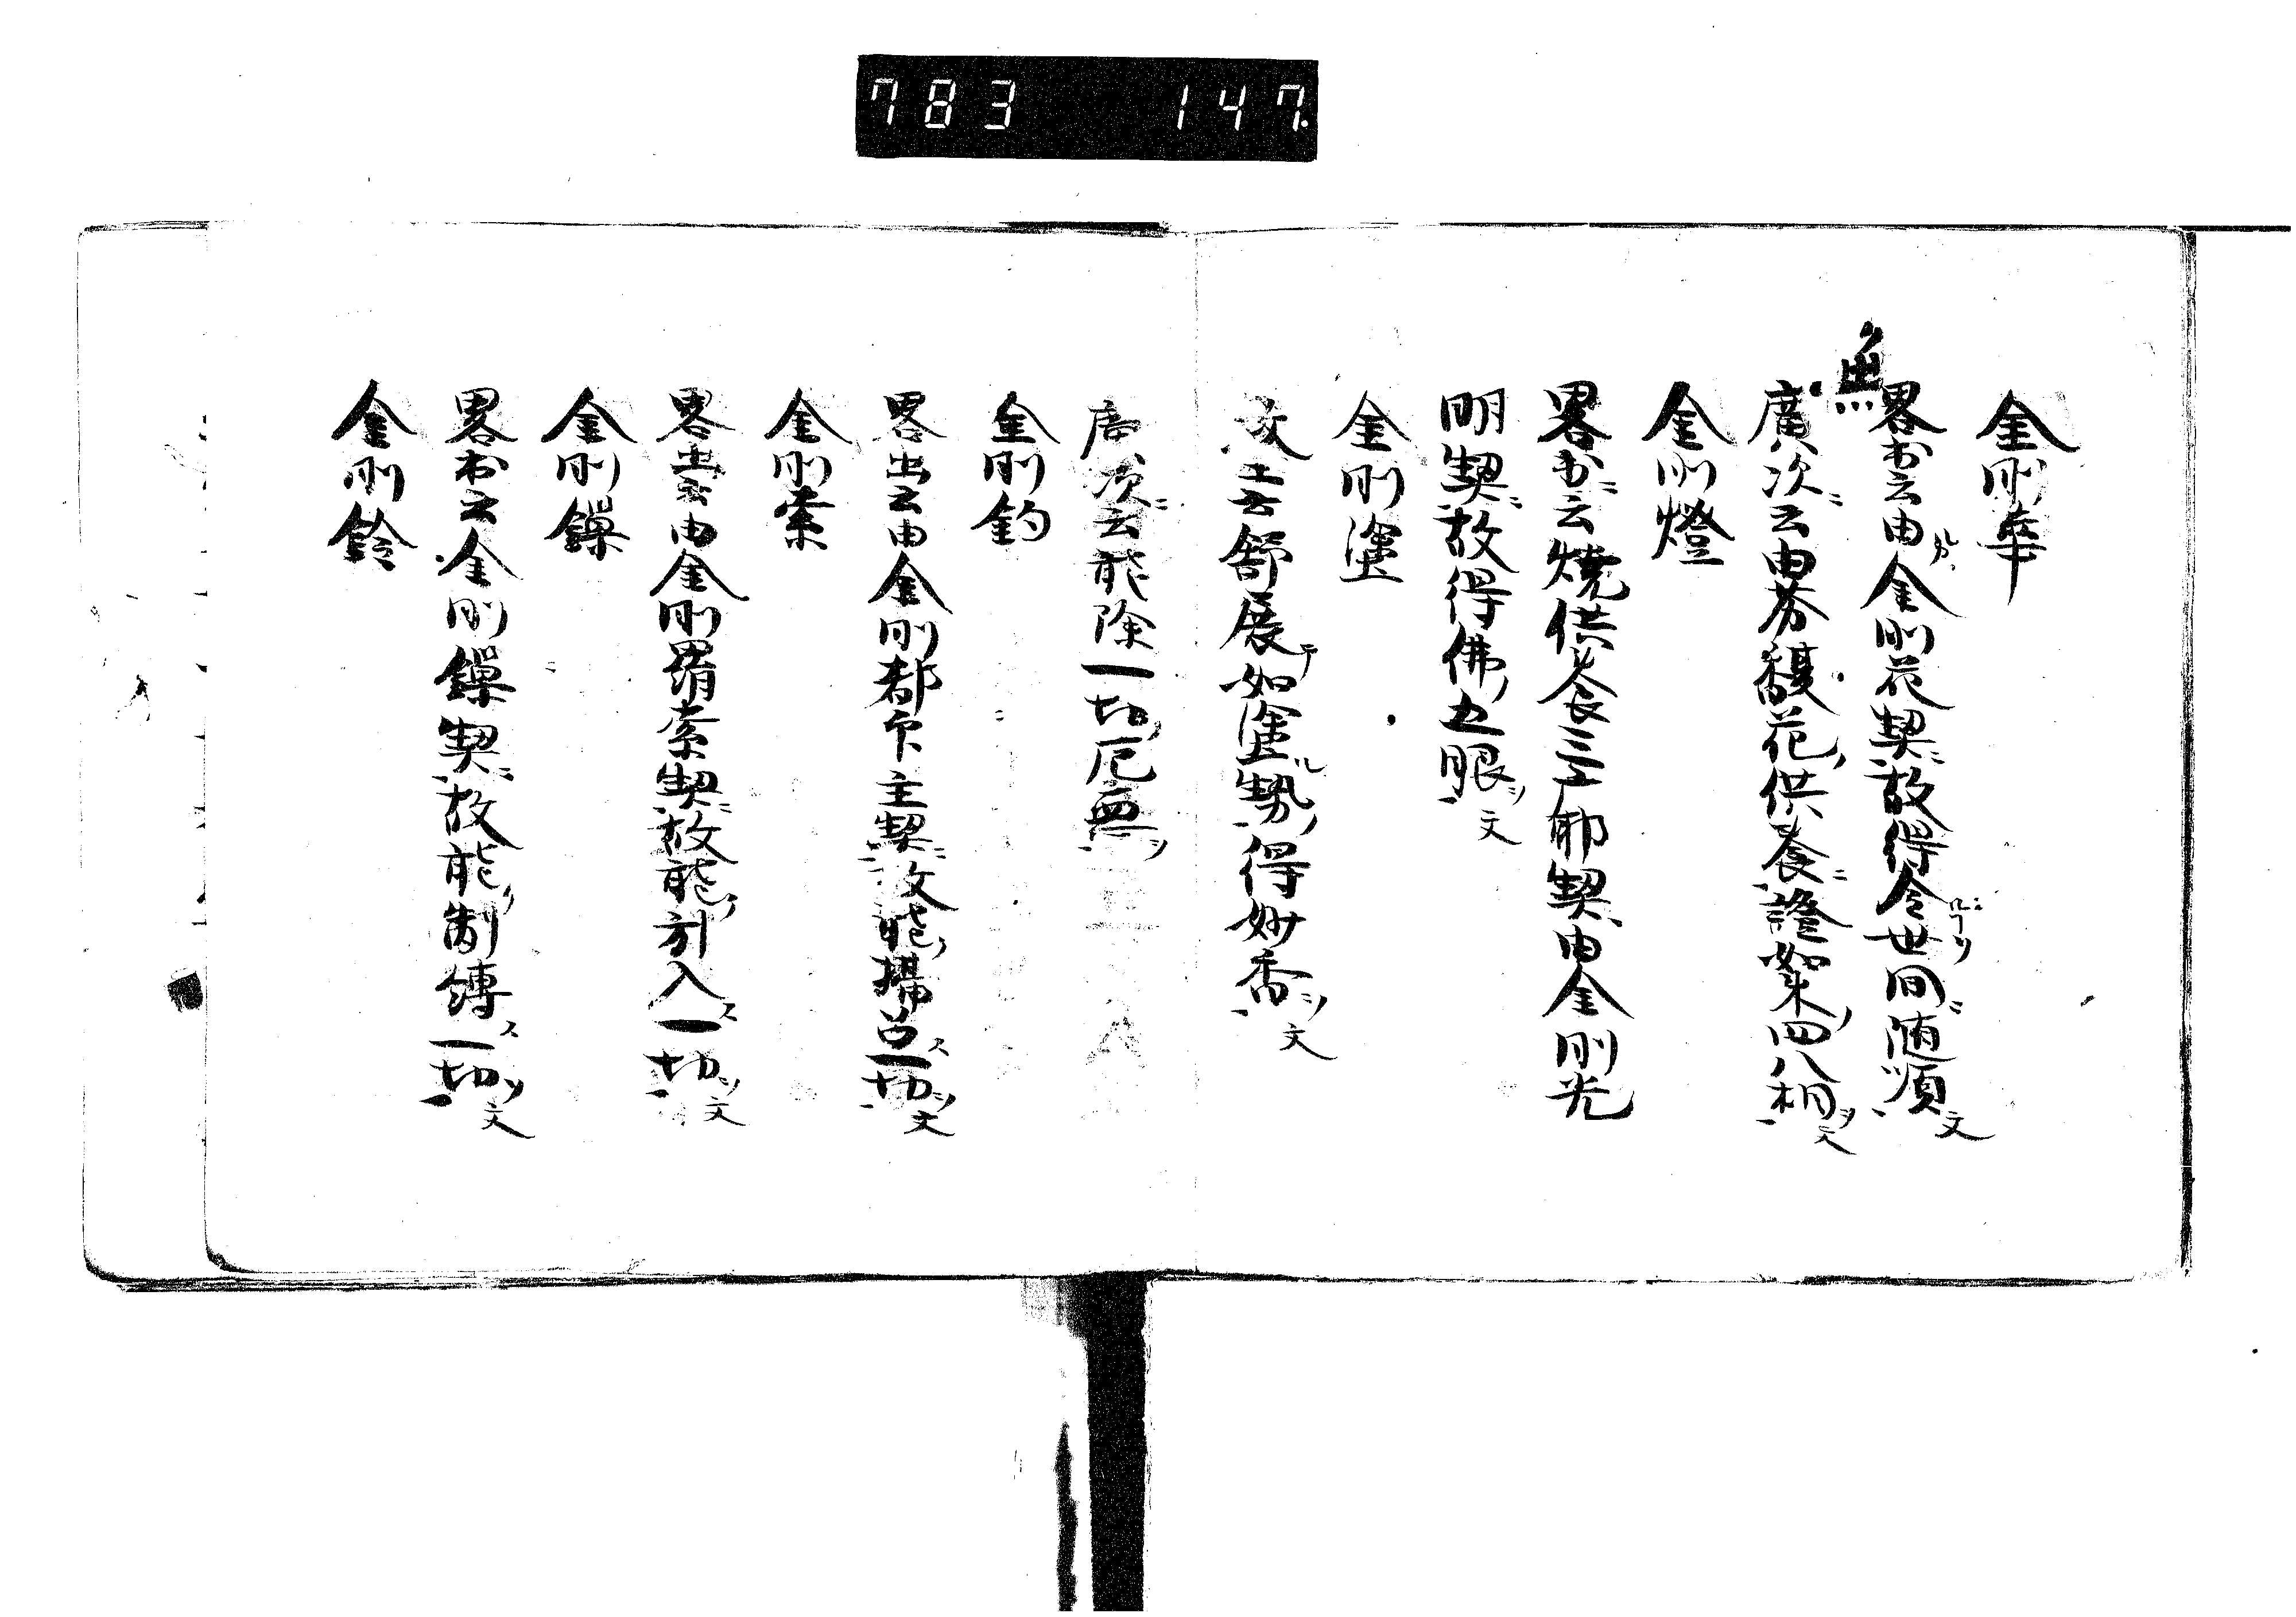 783 147.
金剛華
畧出云由金剛花契故得令世間随順文
無
廣次云由芬馥花供養證如来四八相文
金剛燈
畧出云燒供養三耶契由金剛光
明契故得佛五眼文
金剛塗
文云舒展如塗勢得妙香文
廣次云能除一切厄無
金剛鈎
畧出云由金剛都印主契故能攝召一切文
金剛索
畧出云由金剛羂索契故能引入一切文
金剛鏁
畧出云金剛鏁契故能制縛一切文
金剛鈴